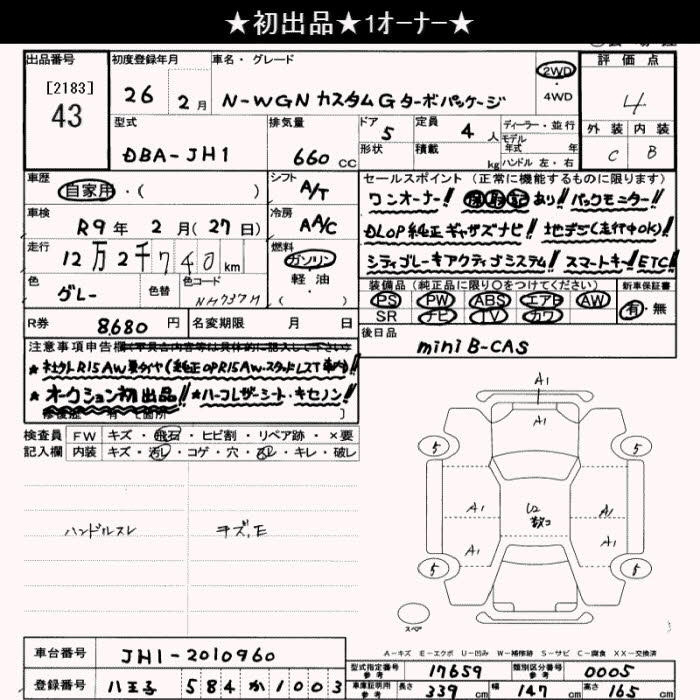 ★初出品★1オーナー★
出品番号
[2183]
43
初度登録年月
26年 2月
車名・グレード
N-WGN カスタムG ターボパッケージ
2WD
・
4WD
評価点
4
外装 内装
C B
型式
DBA-JH1
排気量
660 CC
ドア
5
形状
定員
4 人
積載
kg
ディーラー・並行
モデル
年式 年
ハンドル 左・右
車歴
自家用・( )
シフト
A/T
車検
R9年 2月(27日)
冷房
AAC
走行
12万2千740km
燃料
ガソリン
・
軽油
( )
色
グレー
色替
色コード
NH737M
R券
8680円
名変期限 月 日
セールスポイント(正常に機能するものに限ります)
ワンオーナー!! 保取記あり!! バックモニター!!
DLOP純正ギャザズナビ!! 地デジ(走行中OK)!!
シティブレーキアクティブシステム!! スマートキー!! ETC!!
装備品(純正品に限り○をつけてください)
PS PW ABS エアB AW
SR ナビ TV カワ
新車保証書
有・無
後日品
miniB-CAS
注意事項申告欄
オークション初出品!! ★ハーフレザーシート・キセノン!!
検査員
記入欄
FW キズ・飛石・ヒビ割・リペア跡・×要
内装 キズ・汚レ・コゲ・穴・スレ・キレ・破レ
ハンドルスレ キズ、E
A1
5 5
A1 U2 A1
A1 数コ A1
5 5
スペア
A-キズ E-エクボ U-凹み W-補修跡 S-サビ C-腐食 XX-交換済
車台番号
JH1-2010960
登録番号
八王子 584 か 1003
型式指定番号
参考
17659
類別区分番号
参考
0005
車庫証明用
参考
長さ 339cm 幅 147cm 高さ 165cm